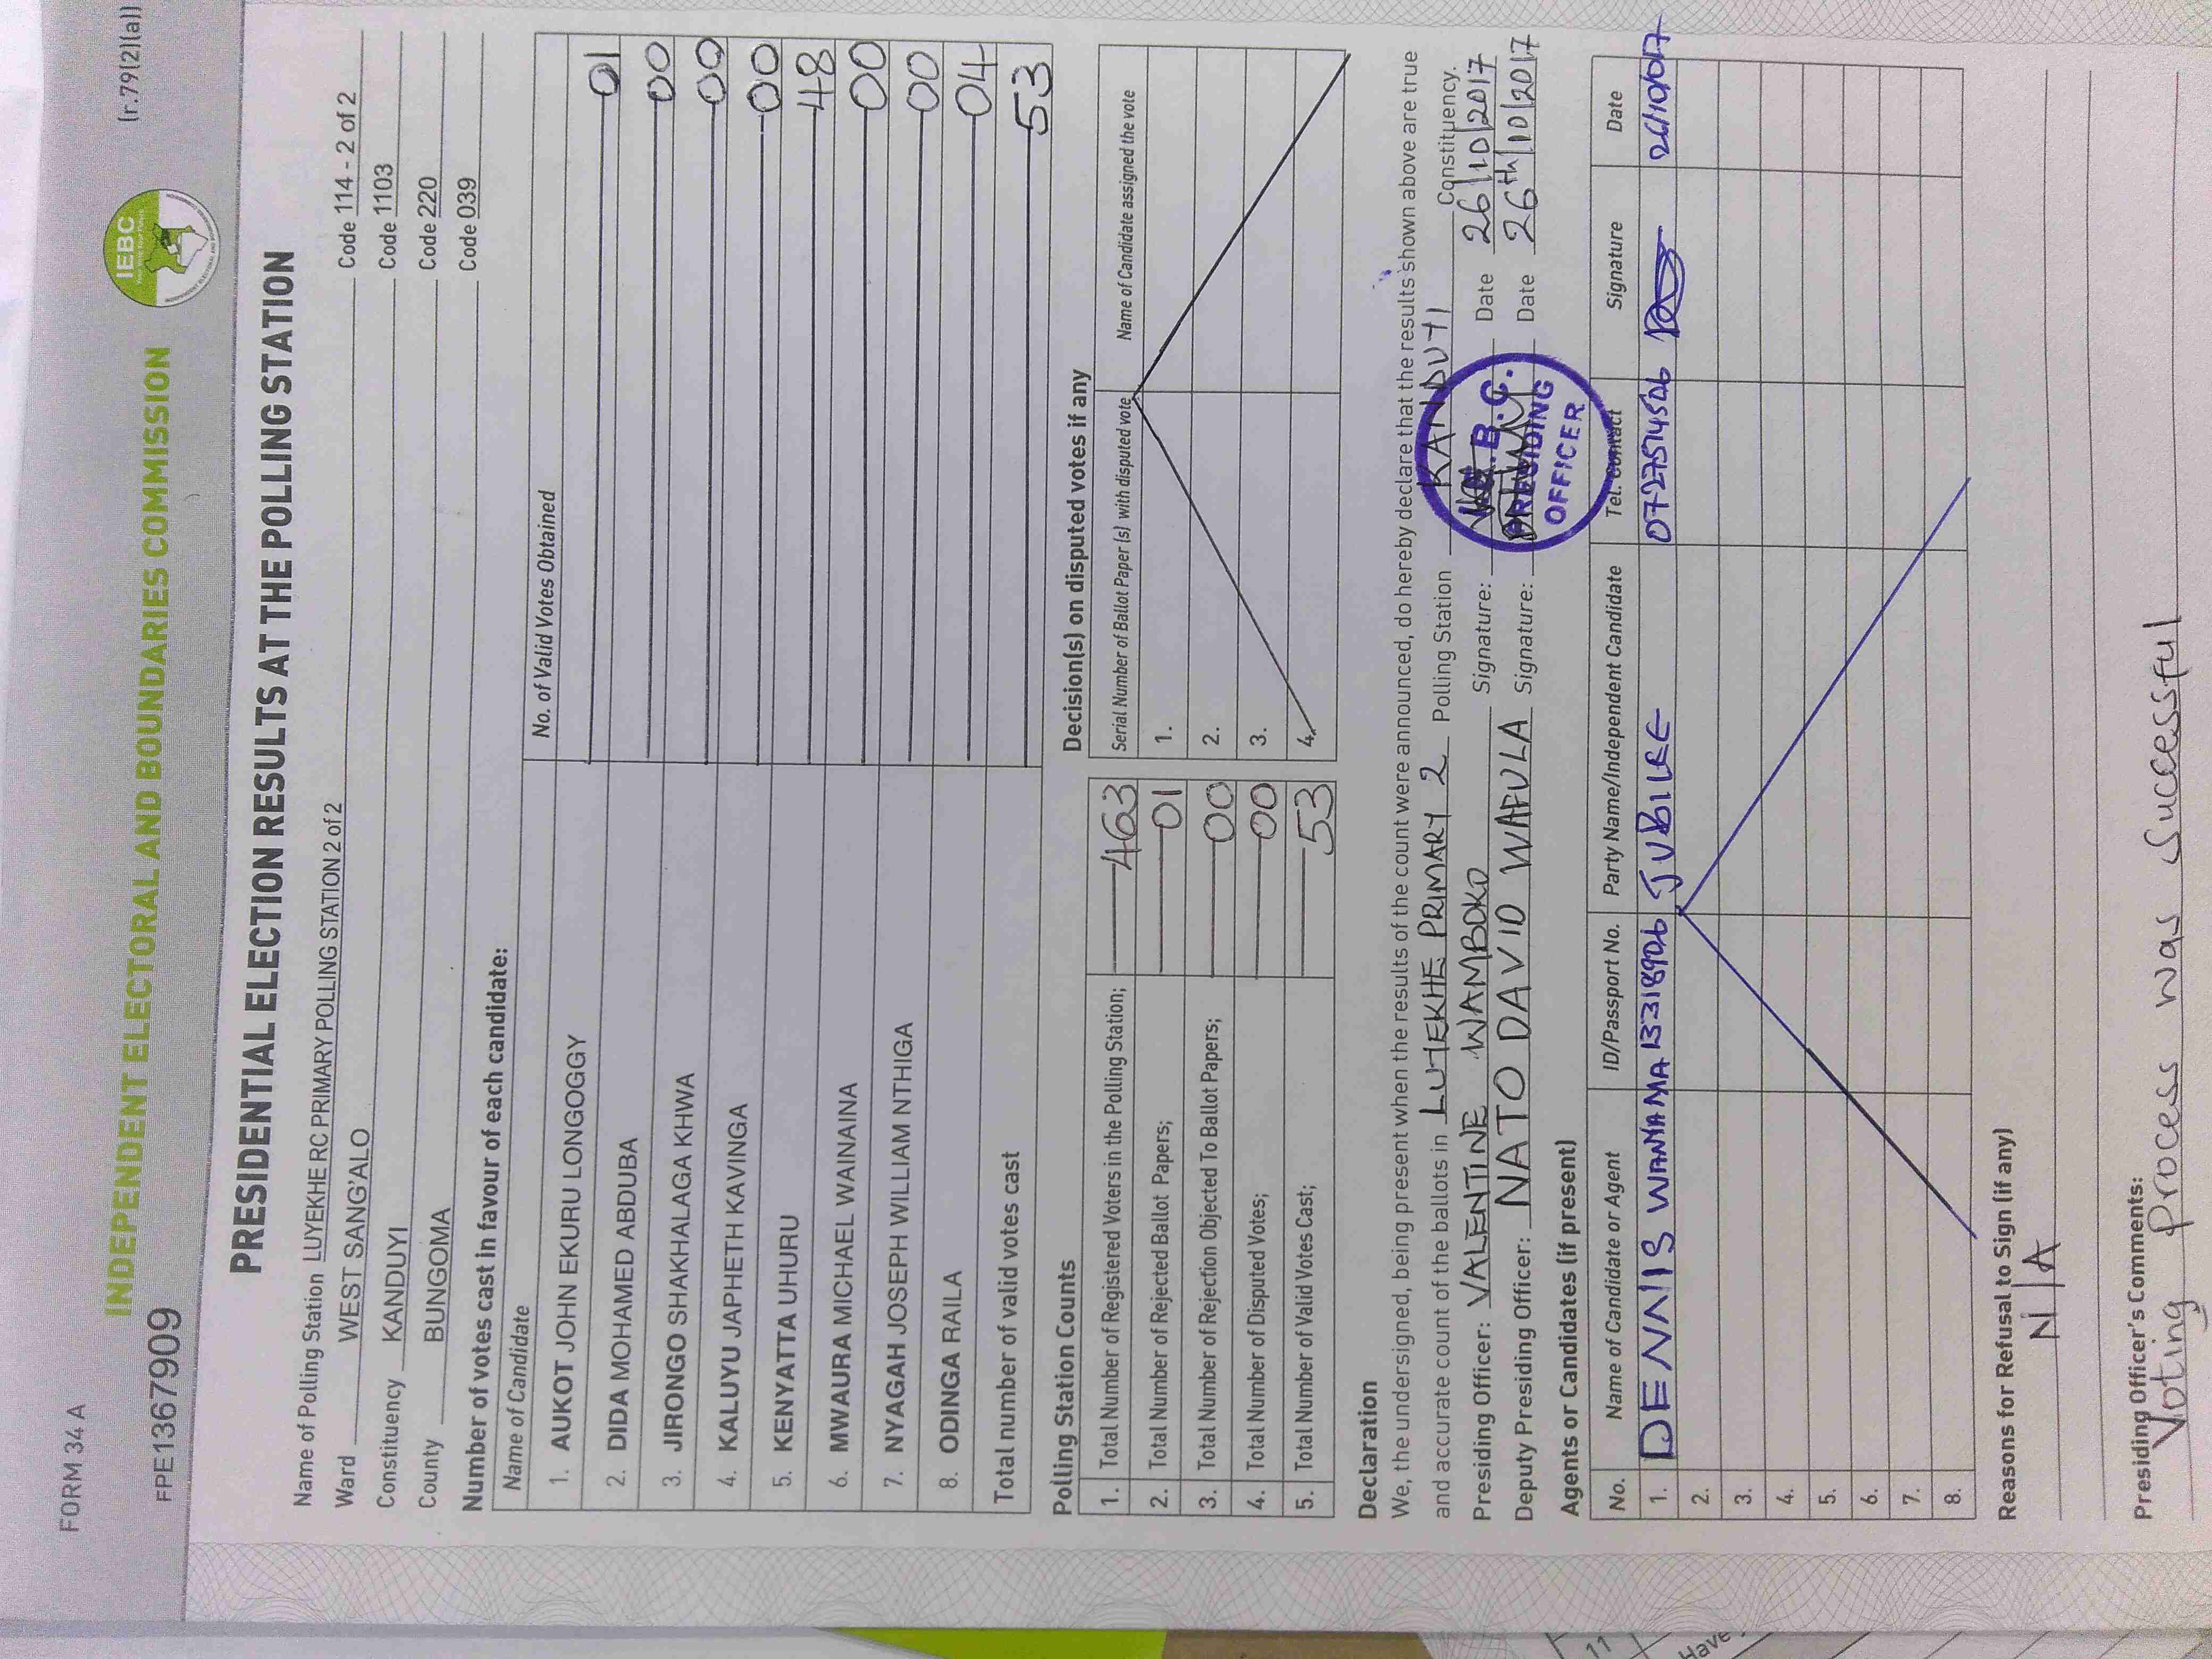 FORM 34 A
(r.79(2)(a))
IEBC
INDEPENDENT ELECTORAL AND BOUNDARIES COMMISSION
FPE1367909
PRESIDENTIAL ELECTION RESULTS AT THE POLLING STATION
Name of Polling Station LUYEKHE RC PRIMARY POLLING STATION 2 of 2 Code 114 - 2 of 2
Ward WEST SANG'ALO Code 1103
Constituency KANDUYI Code 220
County BUNGOMA Code 039
Number of votes cast in favour of each candidate:
Name of Candidate No. of Valid Votes Obtained
1. AUKOT JOHN EKURU LONGOGGY 01
2. DIDA MOHAMED ABDUBA 00
3. JIRONGO SHAKHALAGA KHWA 00
4. KALUYU JAPHETH KAVINGA 00
5. KENYATTA UHURU 48
6. MWAURA MICHAEL WAINAINA 00
7. NYAGAH JOSEPH WILLIAM NTHIGA 00
8. ODINGA RAILA 04
Total number of valid votes cast 53
Polling Station Counts
1. Total Number of Registered Voters in the Polling Station; 463
2. Total Number of Rejected Ballot Papers; 01
3. Total Number of Rejection Objected To Ballot Papers; 00
4. Total Number of Disputed Votes; 00
5. Total Number of Valid Votes Cast; 53
Decision(s) on disputed votes if any
Serial Number of Ballot Paper (s) with disputed vote Name of Candidate assigned the vote
1.
2.
3.
4.
Declaration
We, the undersigned, being present when the results of the count were announced, do hereby declare that the results shown above are true
and accurate count of the ballots in LUYEKHE PRIMARY 2 Polling Station KANDUYI Constituency.
Presiding Officer: VALENTINE WAMBOKO Signature: Date 26/10/2017
Deputy Presiding Officer: NATO DAVID WAFULA Signature: Date 26th/10/2017
PRESIDING
OFFICER
Agents or Candidates (if present)
No. Name of Candidate or Agent ID/Passport No. Party Name/Independent Candidate Tel. Contact Signature Date
1. DENNIS WANYAMA 13318906 JUBILEE 0727574506 26/10/017
2.
3.
4.
5.
6.
7.
8.
Reasons for Refusal to Sign (if any)
N/A
Presiding Officer's Comments:
Voting process was successful
11
Have